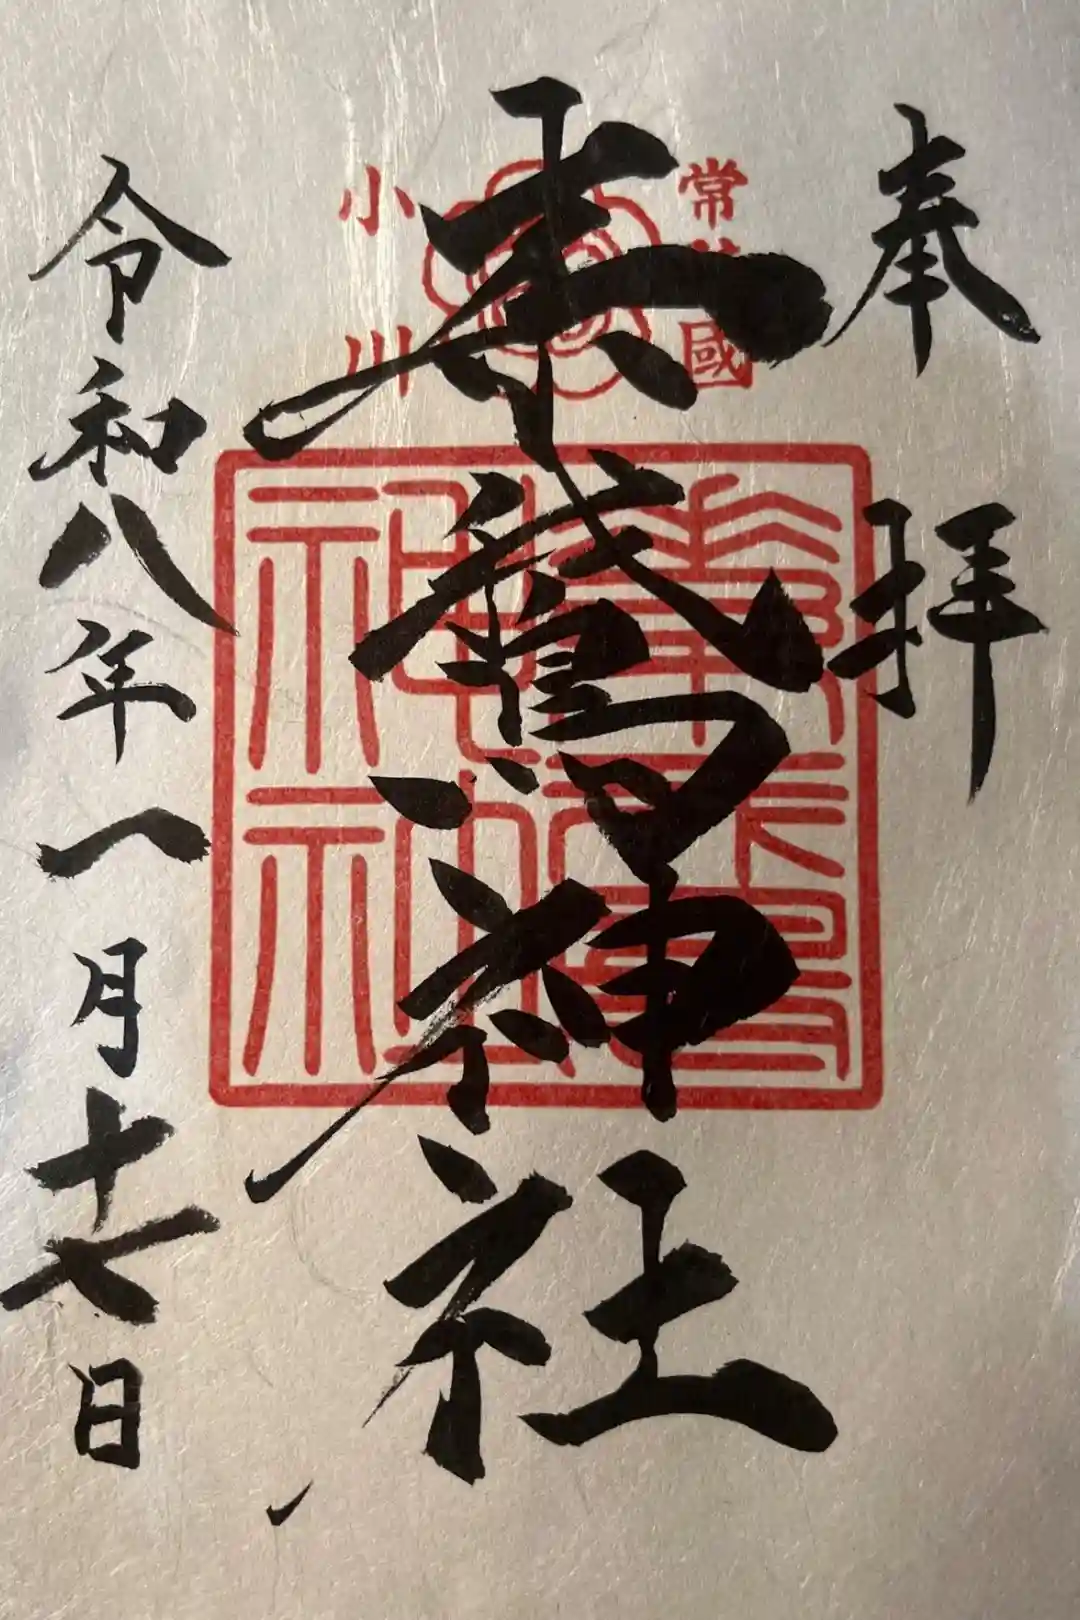 奉拝
常陸國
素鵞神社
小川
素鵞
神社
令和八年一月十七日